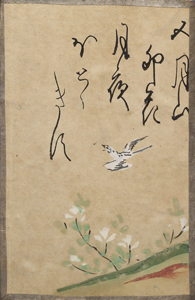 五月山
卯花
月夜
ほとゝ
きす